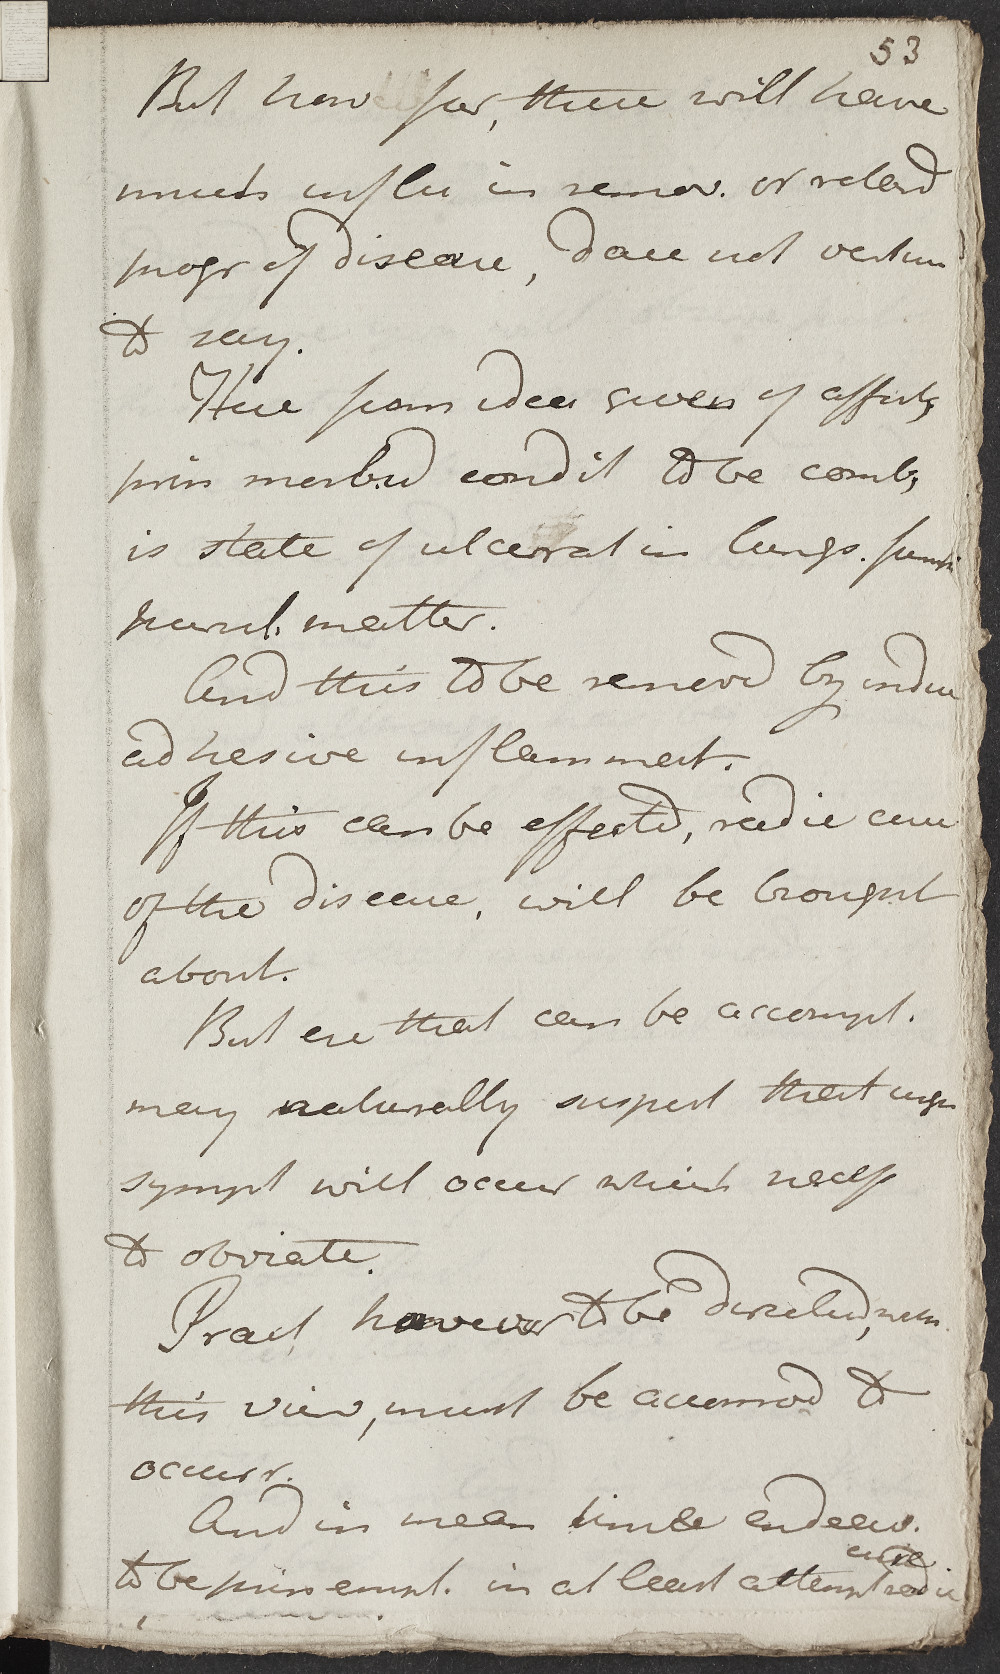 53
But how far, these will have
much influ in remov. or retard
progr of disease, dare not ventur
to say.
Here from idea given of affect,
prin morbid condit to be comb,
is state of ulcerat in lungs. furnish
purul. matter.
And this to be remov'd by induc
adhesive inflammat.
If this can be effected, radic cure
of the disease, will be brought
about.
But ere that can be accompl.
may naturally suspect that urgn
sympt will occur which necess
to obviate.
Pract, however to be directed, with
this view, must be accomod to
occurr.
And in mean time endeav.
cure
to be prin empl. in at least attempt radic